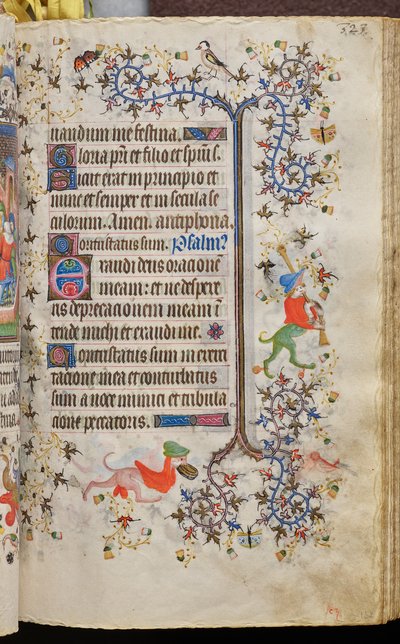 327.
uandum me festina.
Gloria pri et filio et spiui s.
Sicut erat in principio et
nunc et semper et in secula se
culorum. Amen. antiphona.
Contristatus sum. Psalmꝰ
Exaudi deus oracionē
meam: et ne despexe
ris deprecacionem meam ī
tende michi et exaudi me.
Contristatus sum in exerci
tacione mea et conturbatus
sum a uoce inimici et tribula
cione peccatoris.